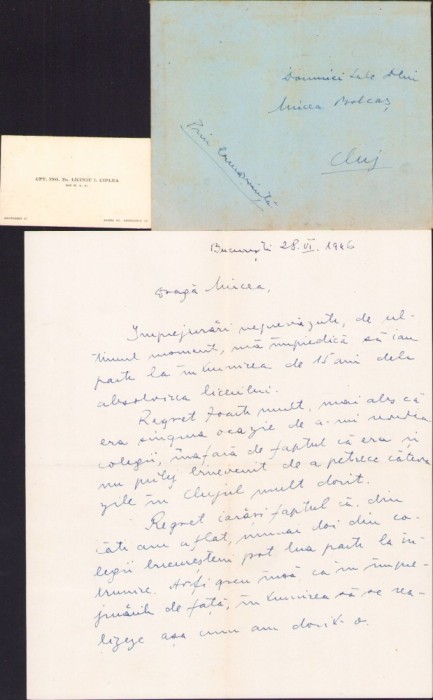 Domniei Sale Dlui
Mircea
Cluj
Prin
CPT. ING. Dr.
București 28.VI.1946
Dragă Mircea,
Împrejurări neprevăzute, de ul-
timul moment, mă împiedică să iau
parte la întrunirea de 15 ani dela
absolvirea liceului.
Regret foarte mult, mai ales că
era singura ocazie de a-mi revedea
colegii, înafară de faptul că era și
un prilej binevenit de a petrece câteva
zile în Clujul mult dorit.
Regret iarăși faptul că, din
câte am aflat, numai doi din co-
legii bucureșteni pot lua parte la în-
trunire. Ar fi greu însă ca în împre-
jurările de față, întrunirea să se rea-
lizeze așa cum am dorit-o.